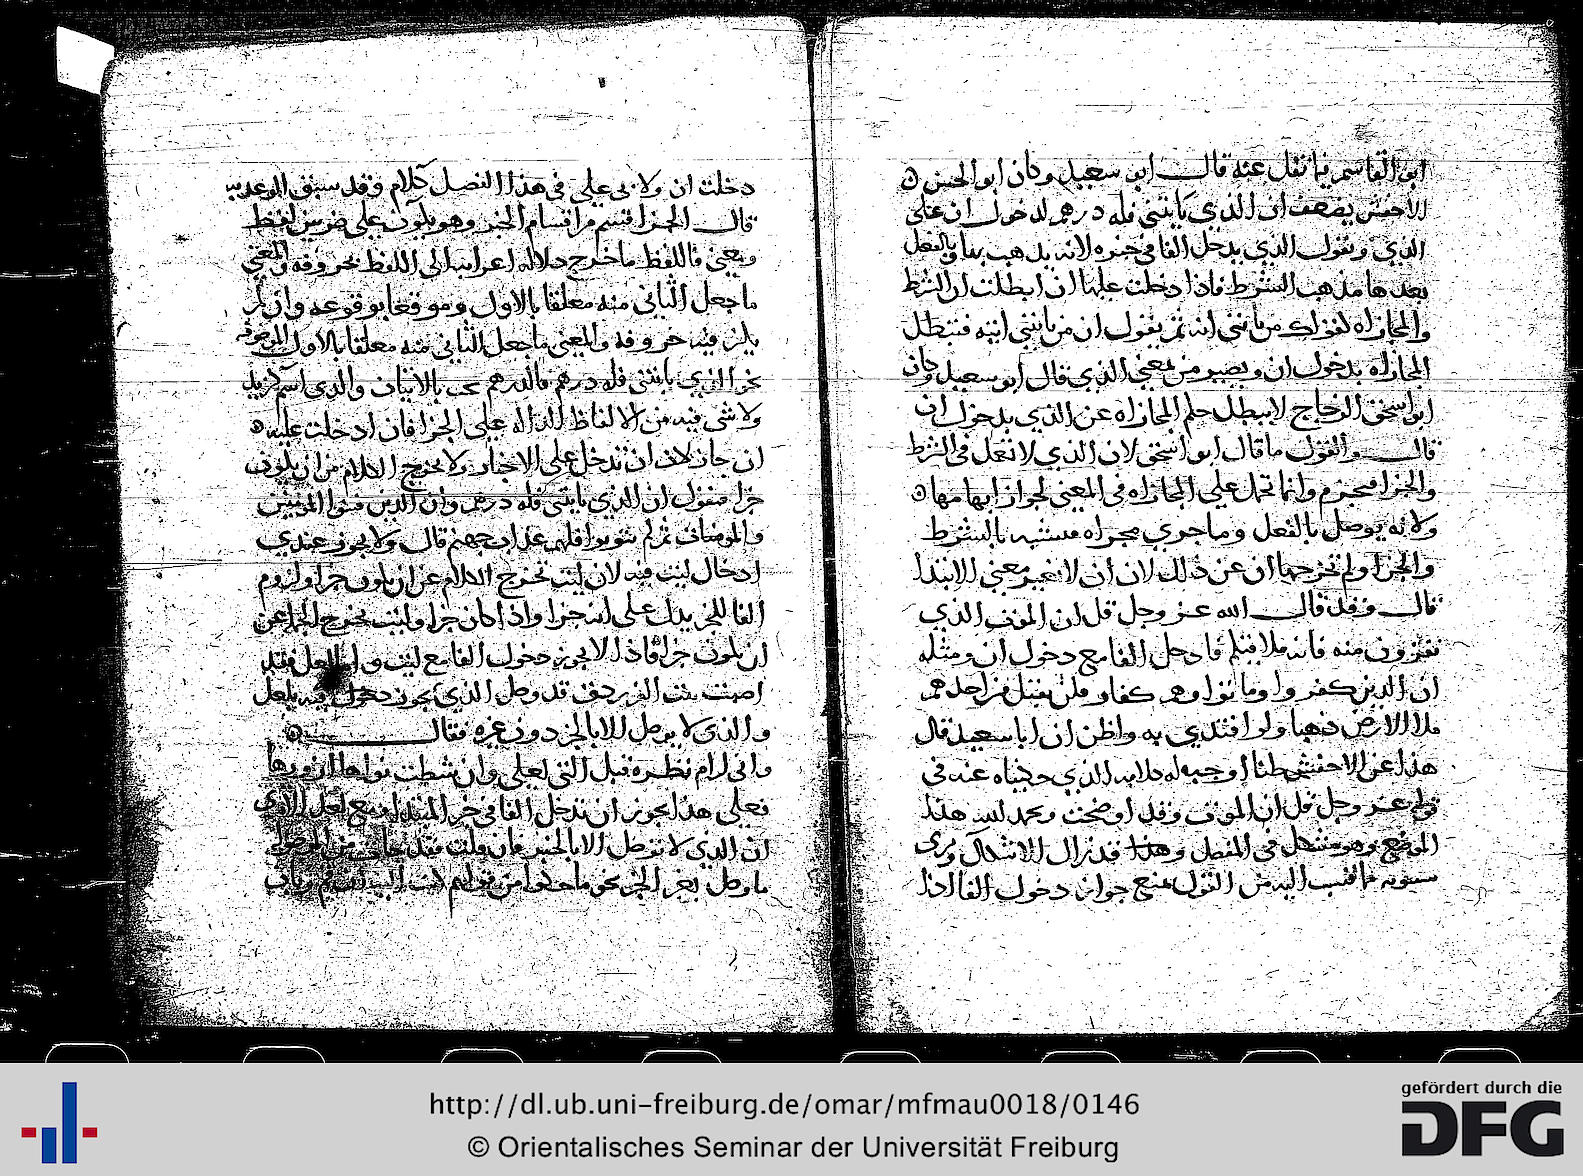 ابن القاسم فيما نقل عنه قال ابو سعيد وكان ابو الحسن
الاخفش يضعف ان الذي يأتيني فله درهم لدخول ان على
الذي ويقول الذي يدخل الفا في خبره لانه يذهب بها بالفعل
بعدها مذهب الشرط فاذا دخلت عليها ان ابطلت ان الشرط
والمجازاه لقولك من يأتني اته ثم يقول ان من يأتيني اتيه فتبطل
المجازاه بدخول ان ويصير من بمعنى الذي قال ابو سعيد وكان
ابو اسحق الزجاج لا يبطل حكم المجازاه عن الذي بدخول ان
قال والقول ما قال ابو اسحق لان الذي لا تعمل في الشرط
والجزا فيجزم وانما تحمل على المجازاه في المعنى لجواز ابهامها
ولانه يوصل بالفعل وما جرى مجراه فشبه بالشرط
والجزا ولم تخرجها ان عن ذلك لان ان لا تغير معنى الابتدا
قال وقد قال الله عز وجل قل ان الموت الذي
تفرون منه فانه ملاقيكم فادخل الفا مع دخول ان ومثله
ان الذين كفروا وماتوا وهم كفار فلن يقبل من احدهم
ملا الارض ذهبا ولو افتدى به واظن ان ابا سعيد قال
هذا عن الاخفش ظنا اوجبه له كلامه الذي حكيناه عنه في
قوله عز وجل قل ان الموت وقد اوضحت وبحمد لله هذا
الموضع وهو مشكل في المفصل وهذا قد زال الاشكال ويرى
سيبويه ما نسب اليه من القول بمنع جواز دخول الفا اذا
دخلت ان ولابي علي في هذا الفصل كلام وقد سبق الوعد به
قال الجزا قسم من اقسام الخبر وهو يكون على ضربين لفظ
ومعنى فاللفظ ما خرج دلاله اعرابه الى اللفظ بحروفه والمعنى
ما جعل الثاني منه معلقا بالاول وموقعا بوقوعه وان لم
يكن فيه حروفه والمعنى ما جعل الثاني منه معلقا بالاول
نحو الذي يأتيني فله درهم فالدرهم يجب بالاتيان والذي اسم كزيد
ولا شي فيه من الالفاظ الداله على الجزا فان ادخلت عليه
ان جاز لان ان تدخل على الاخبار ولا يخرج الكلام من ان يكون
جزا فتقول ان الذي يأتيني فله درهم وان الذين فتنوا المومنين
والمومنات ثم لم يتوبوا فلهم عذاب جهنم قال ولا يجوز عندي
ادخال ليت فيه لان ليت تخرج الكلام عن ان يكون خبرا ولزوم
الفا للخبر يدل على انه جزا واذا كان جزا وليت تخرج الجزا عن
ان يكون جزا فاذا لا يجوز دخول الفا مع ليت ولعل
بيت الفرزدق قد وصل الذي يجوز دخول فيه بلعل
والذي لا يوصل الا بالخبر دون غيره فقال
واني لرام نظرة قبل التي لعلي وان شطت نواها ازورها
فعلى هذا يجوز ان تدخل الفا في خبر المبتدا مع لعل
ان الذي لا توصل الا بالخبر فان قلت فقد جا من الموصول
ما وصل بغير الخبر نحو ما حكوا من قولهم
http://dl.ub.uni-freiburg.de/omar/mfmau0018/0146
© Orientalisches Seminar der Universität Freiburg
gefördert durch die
DFG